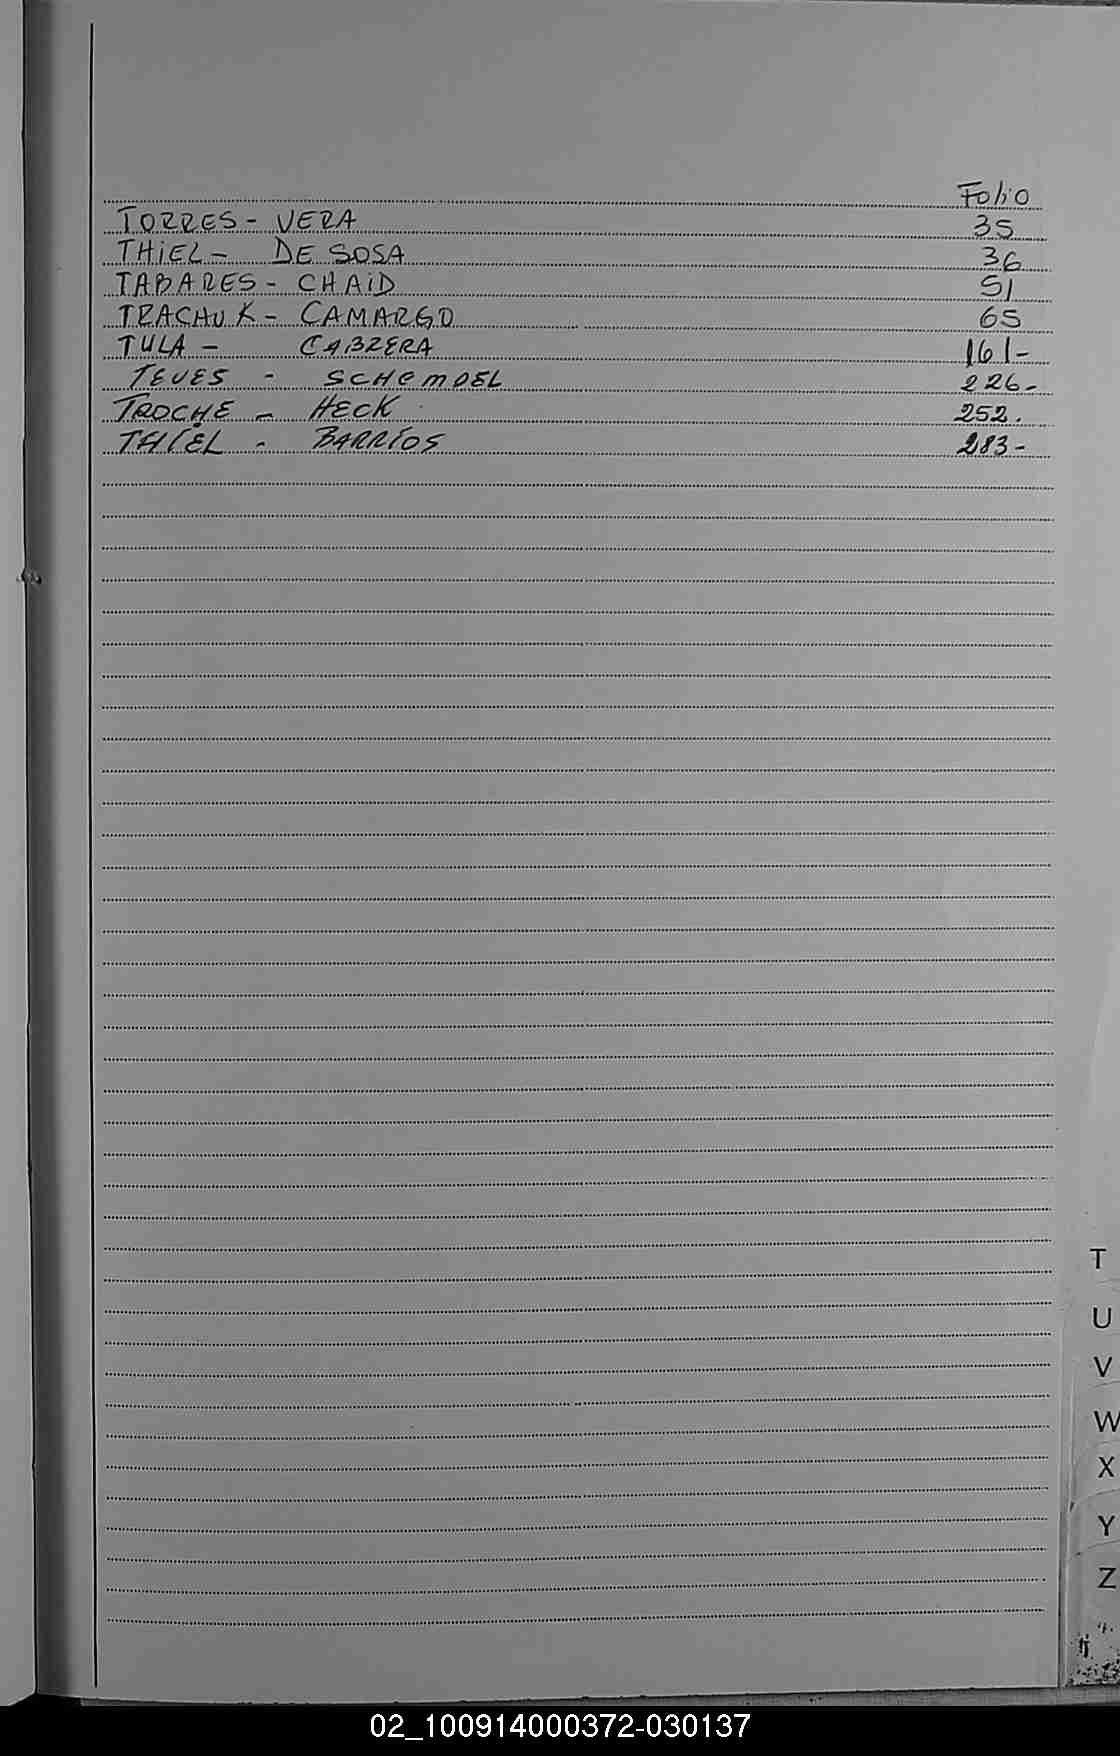 Folio
TORRES - VERA 35
THIEL - DE SOSA 36
TABARES - CHAID 51
TRACHUK - CAMARGO 65
TULA - CABRERA 161-
TEVES - SCHEMDEL 226-
TROCHE - HECK 252.
THIEL - BARRIOS 283-
T
U
V
W
X
Y
Z
02_100914000372-030137